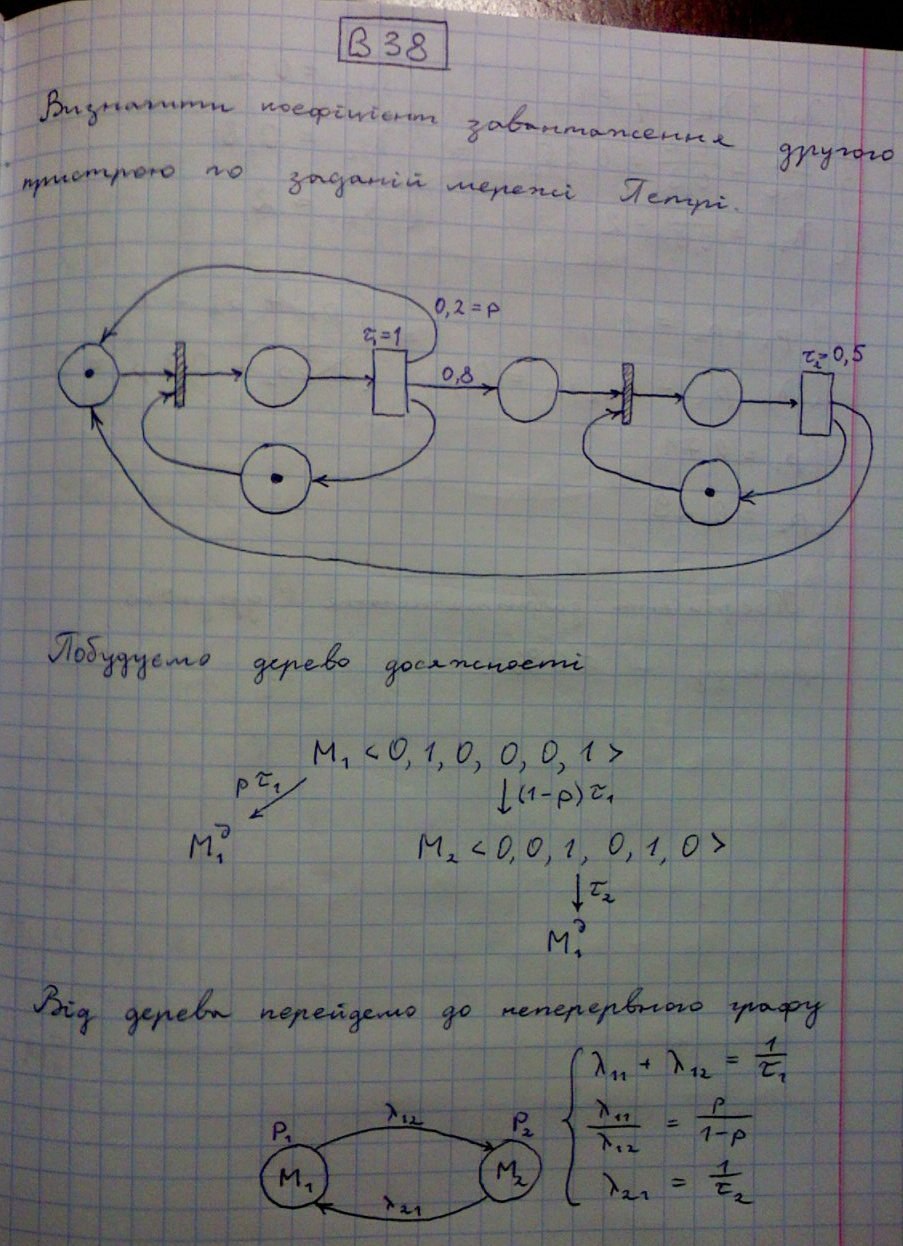 В 38
Визначити коефіцієнт завантаження другого
пристрою по заданій мережі Петрі.
0,2 = p
τ₁=1
0,8
τ₂=0,5
Побудуємо дерево досяжності
M₁ < 0, 1, 0, 0, 0, 1 >
pτ₁
(1-p)τ₁
M₁^д
M₂ < 0, 0, 1, 0, 1, 0 >
τ₂
M₁^д
Від дерева перейдемо до неперервного графу
λ₁₁ + λ₁₂ = 1/τ₁
P₁ λ₁₂ P₂
λ₁₁/λ₁₂ = p/(1-p)
M₁ M₂
λ₂₁
λ₂₁ = 1/τ₂